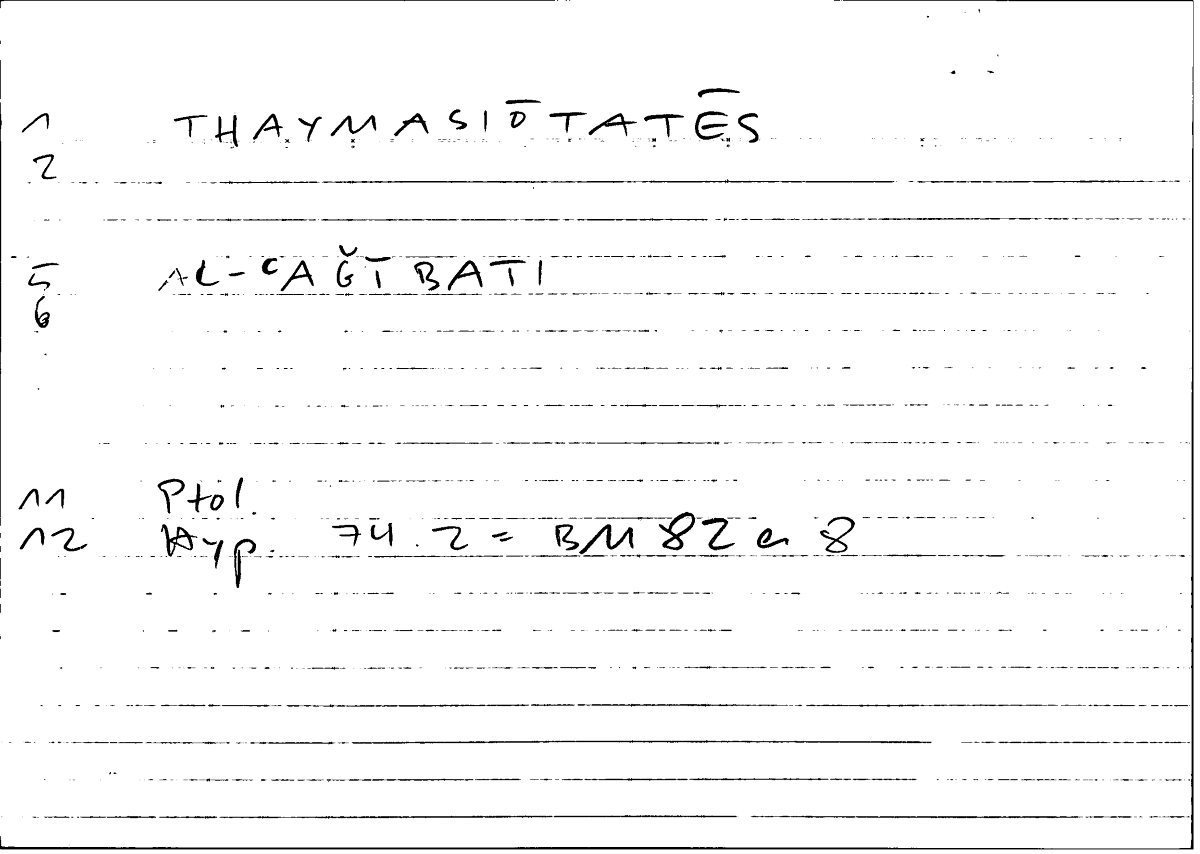 1 THAYMASIŌTATĒS
2
5 AL-ʿAǦĪBATI
6
11 Ptol.
12 Hyp. 74.2 = BM 82 a 8